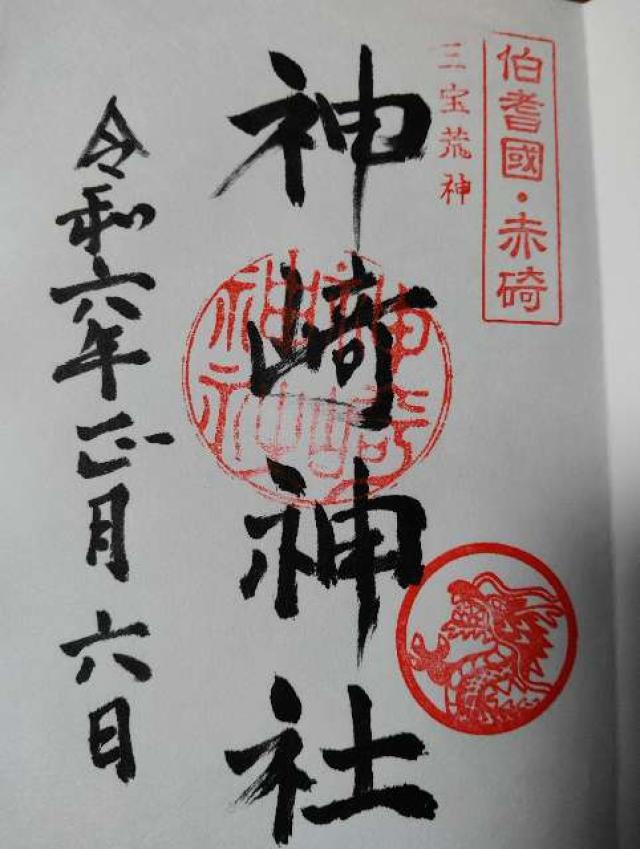 伯耆國・赤碕
三宝荒神
神﨑神社
神﨑神社
令和六年正月六日